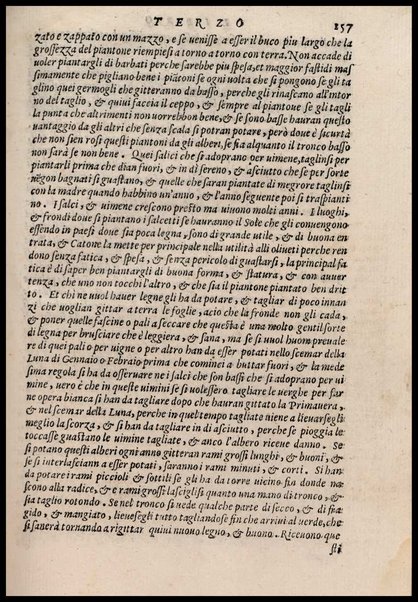 TERZO 157
zato e zappato con un mazzo, e se uenisse a esser il buco piu largo che la
grossezza del piantone riempiesi a torno a torno con terra. Non accade di
uoler piantargli di barbati perche sarebbe piu spesa, et maggior fastidi mas
simamente che pigliano bene i piātoni se ogni uolta che si pongono se gli ta
glino quei germogli che gitteranno da basso, perche gli rinascano all'intor
no del taglio, & quiui faccia il ceppo, & sempre al piantoue se gli tagli
la punta che altrimenti non uorrebbon bene, & se sono basse hauran questo
uantaggio da gli altri che senza scala si potran potare, però doue è sicurtà
che non sien rosi questi piantoni da gli alberi, se fia alquanto il tronco basso
non sarà se non bene. Quei salici che si adoprano per uimene, taglinsi per
piantarli prima che dian fuori, & in dì sereno, & asciutto che se per sorte
uēgon bagnati si guastano, & quelle che saran piantate di negrore taglinsi
con la madre quando habbino un'anno, & l'anno seguente poi si traspianti
no. I salci, & uimene crescono presto ma uiuono molti anni. I luoghi,
& frondi doue si piantano i salcetti se hauranno il Sole che gli conuengono
essendo in paesi doue sia poca legna, sono di grande utile, & di buona en
trata, & Catone la mette per principale nella utilità alli oliueti perche ren
dono senza fatica, & spesa, & senza pericolo di guastarsi, la principal fa
tica è di saper ben piantargli di buona forma, & statura, & con auuer
tenza, che uno non tocchi l'altro, & che sia il piantone piantato ben di
rito. Et chi ne uuol hauer legne gli ha da potare, & tagliar di poco innan
zi che uoglian gittar a terra le foglie, acio che la fronde non gli cada,
& poner quelle fascine o pali a seccare che questa è una molto gentil sorte
di legna per brusciare che è leggiera, & sana, ma se si uuol huom preuale
re di quei pali o per uigne o per altro han da esser potati nello scemar della
Luna di Gennaio o Febraio prima che cominci a buttar fuori, & la mede
sima regola si ha da osseruare nei salci che son bassi che si adoprano per ui
mine, uero è che in queste uimini se si uolessero tagliare le uerghe per far
ne opera bianca si han da tagliare dopo che hauran gittato la Primauera,
& nel scemar della Luna, perche in quel tempo tagliate niene a lieuarsegli
meglio la scorza, & si han da tagliare in dì asciutto, perche se pioggia le
toccasse guastano le uimine tagliate, & anco l'albero riceue danno. Se
si potano questi alberi ogni anno gitteran rami grossi lunghi, & buoni, &
se si interlasciann a esser potati, saranno i rami minuti, & corti. Si han
da potare i rami piccioli & sottili se gli ha da torre uicino fia donde na-
scono alla radice, & e rami grossi lasciglisi quanto una mano di tronco, &
sia taglio rotondo. Se nel tronco si uede qualche parte di secco, & di fra
gido, & mangiato, lieuesegli tutto tagliandose fin che arriui al uerde, che
si sanerà tornando a rigittar quiui nuouo legno, & buono. Riceuono que
sti